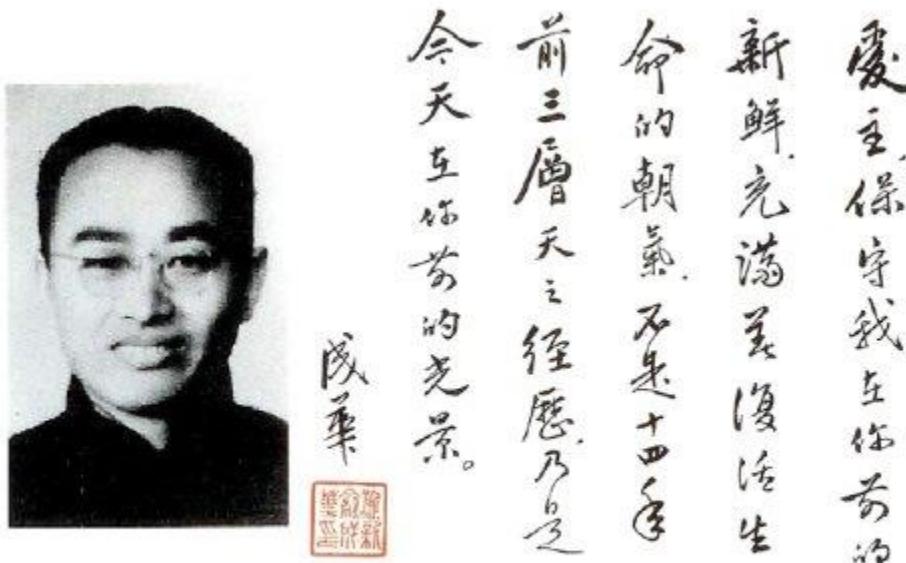 愛主，保守我在你前的
新鮮，充滿着復活生
命的朝氣，不是十四年
前三層天之經歷，乃是
今天在你前的光景。
成華